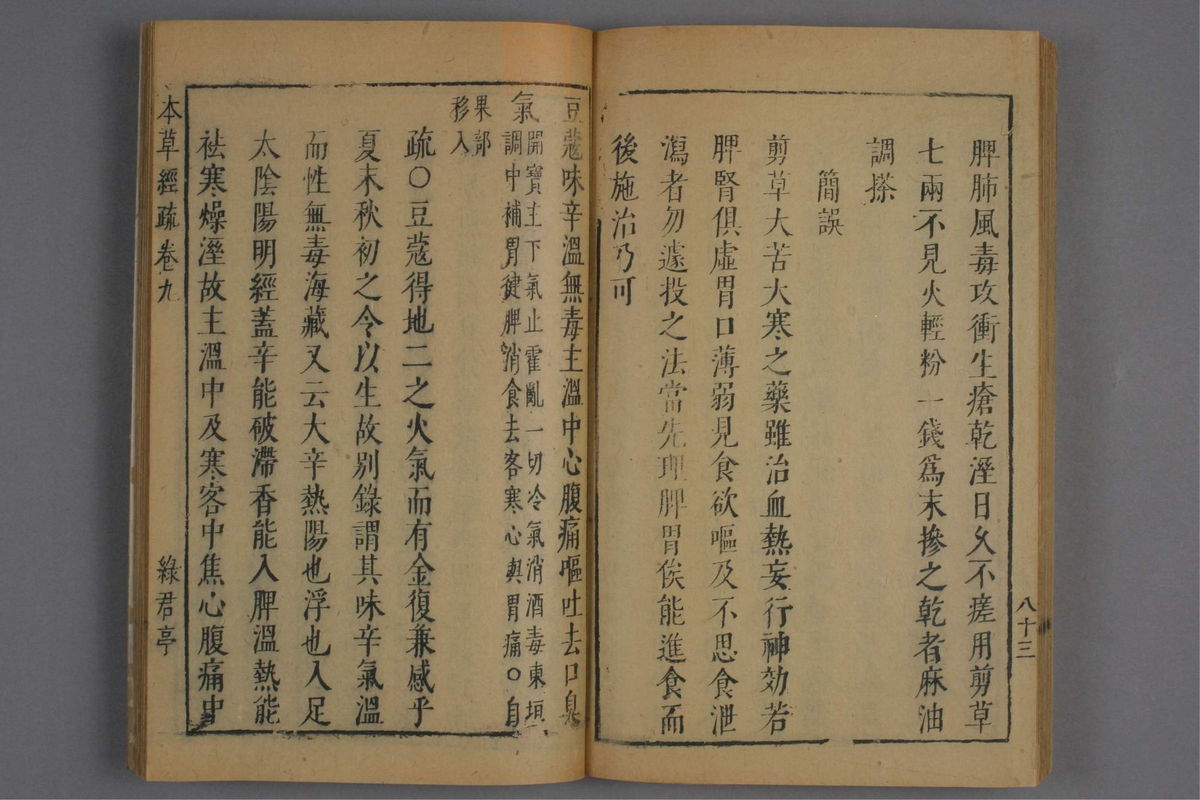 脾肺風毒攻衝生瘡乾溼日久不瘥用剪草
七兩不見火輕粉一錢爲末摻之乾者麻油
調搽
簡誤
剪草大苦大寒之藥雖治血熱妄行神効若
脾腎俱虛胃口薄弱見食欲嘔及不思食泄
瀉者勿遽投之法當先理脾胃俟能進食而
後施治乃可
八十三
豆蔻味辛溫無毒主溫中心腹痛嘔吐去口臭
氣
開寶主下氣止霍亂一切冷氣消酒毒東垣
調中補胃健脾消食去客寒心與胃痛○自
果部
移入
疏○豆蔻得地二之火氣而有金復兼感乎
夏末秋初之令以生故别錄謂其味辛氣溫
而性無毒海藏又云大辛熱陽也浮也入足
太陰陽明經蓋辛能破滯香能入脾溫熱能
祛寒燥溼故主溫中及寒客中焦心腹痛中
本草經疏卷九
綠君亭